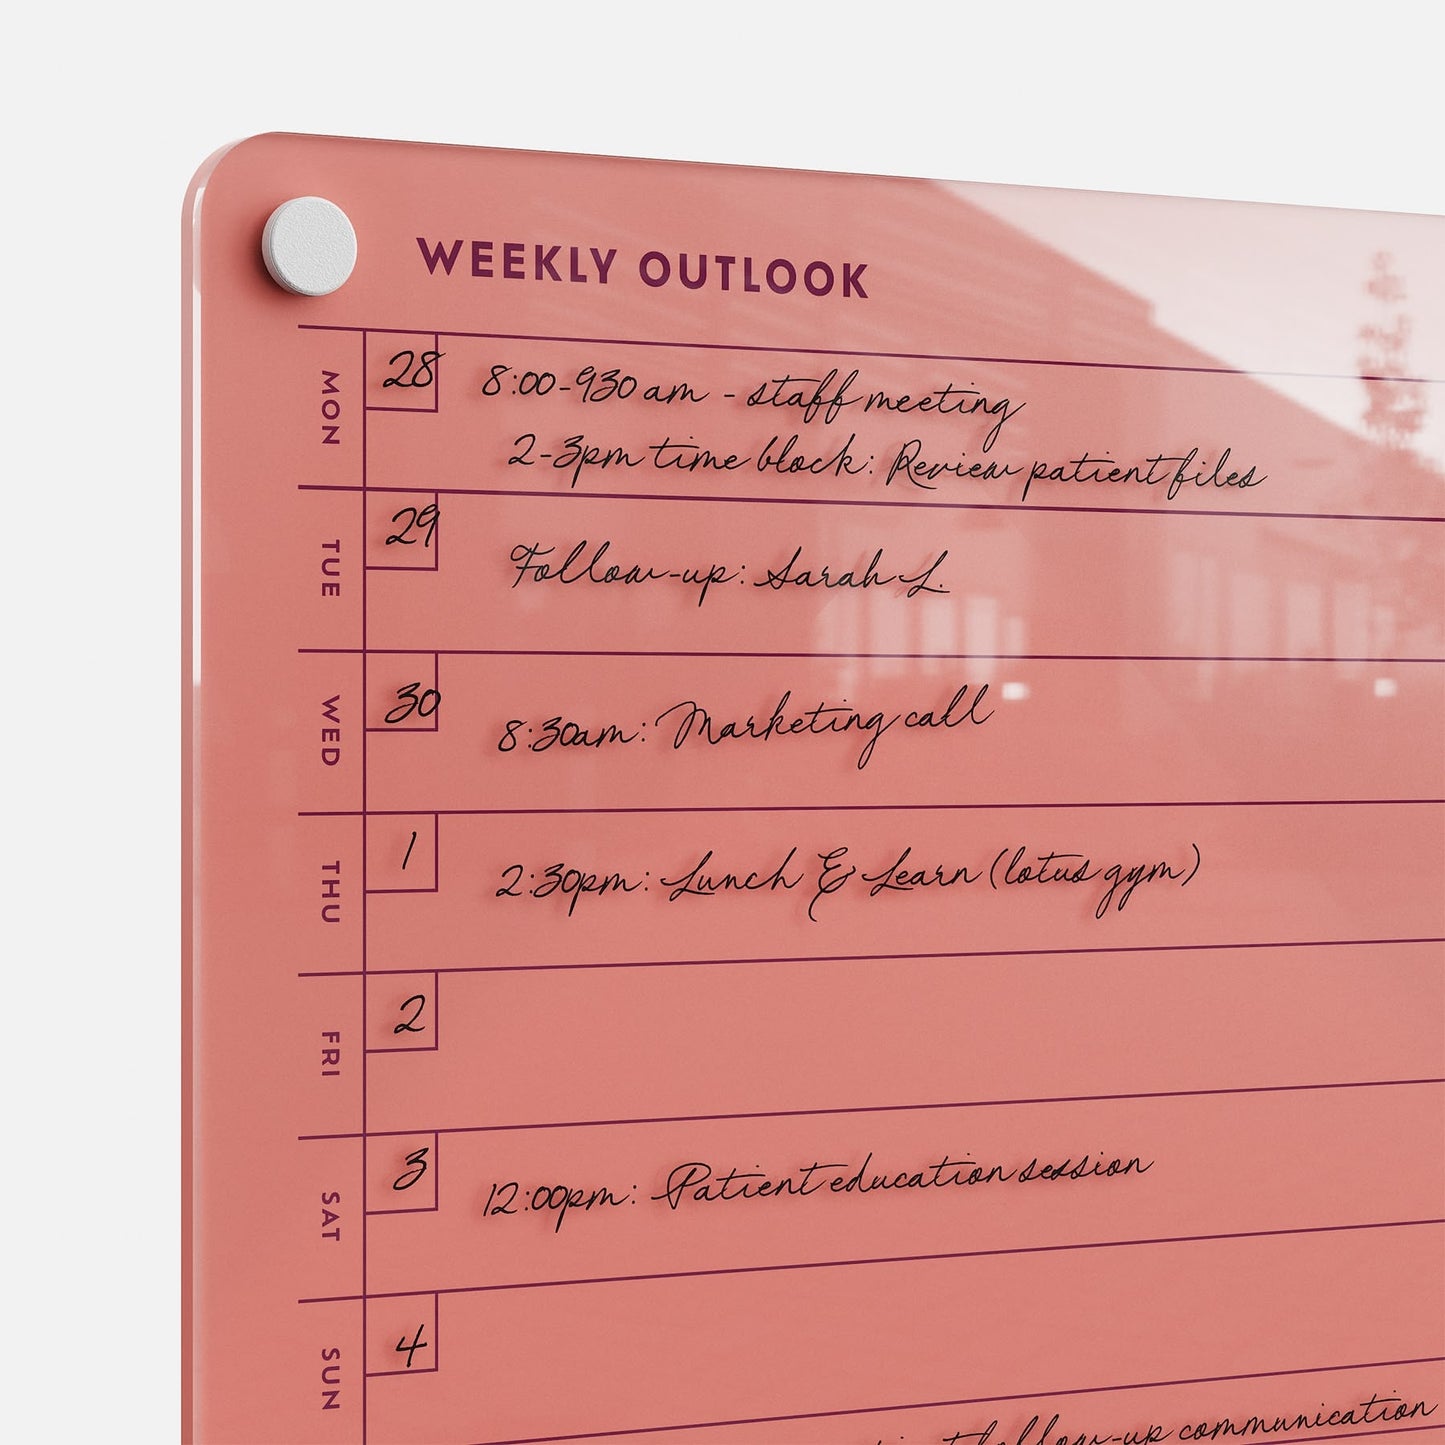 WEEKLY OUTLOOK
MON
28
8:00-930 am - staff meeting
2-3pm time block: Review patient files
TUE
29
Follow-up: Sarah L.
WED
30
8:30am: Marketing call
THU
1
2:30pm: Lunch & Learn (lotus gym)
FRI
2
SAT
3
12:00pm: Patient education session
SUN
4
follow-up communication